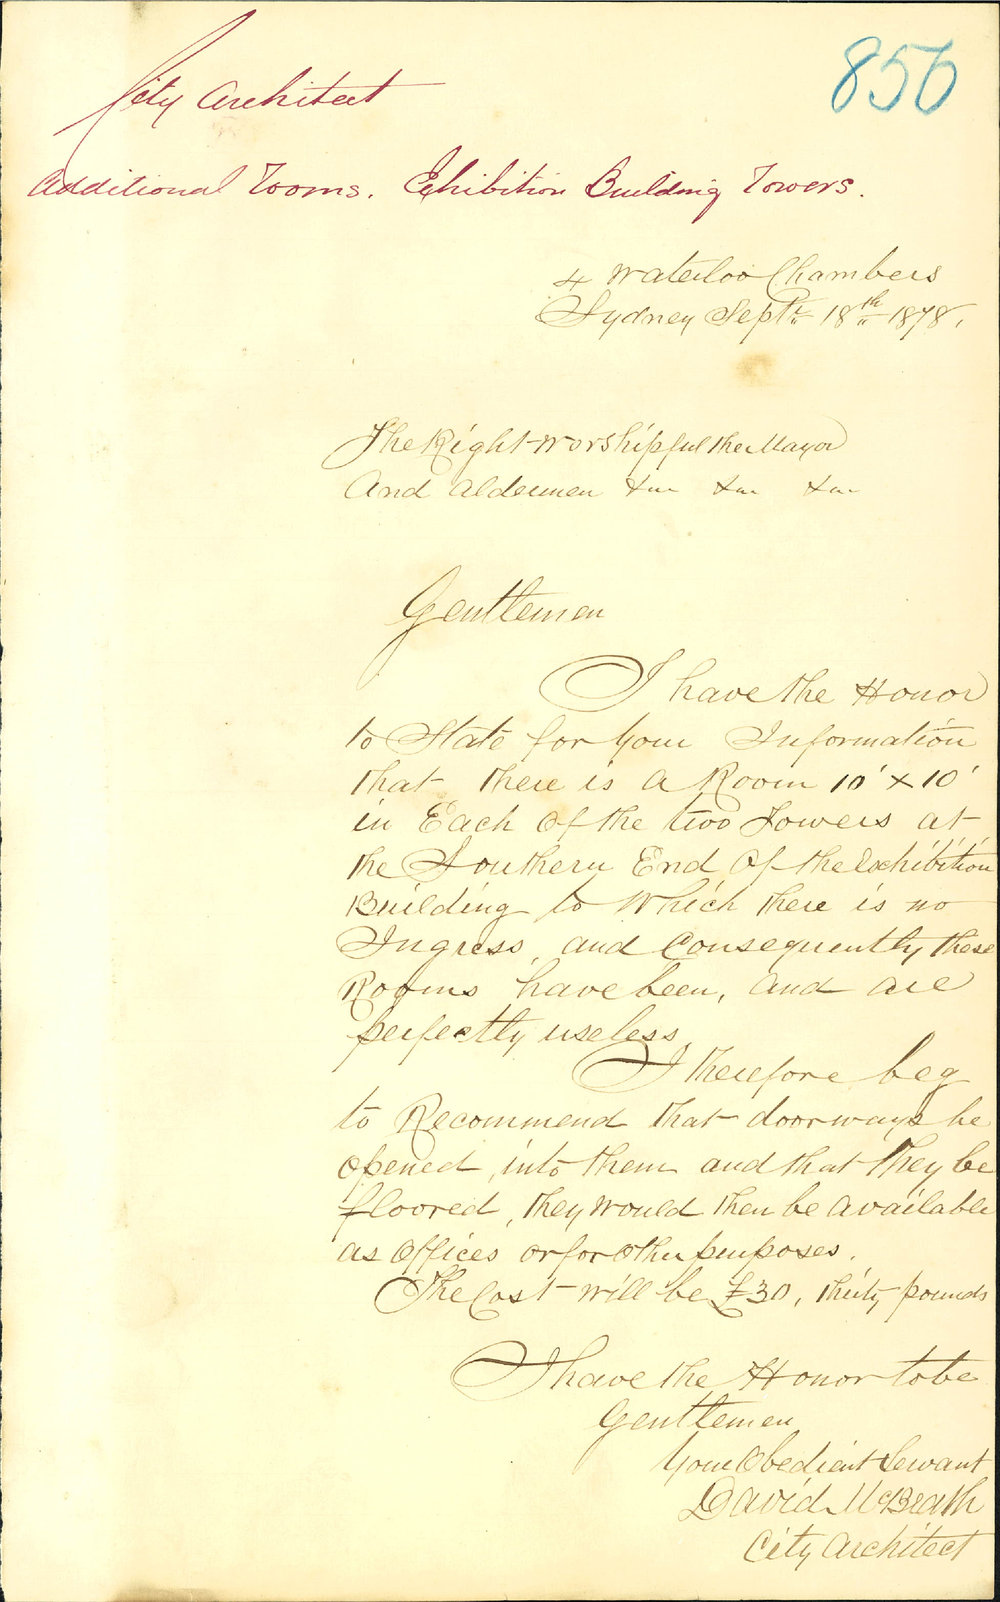 856
City Architect
Additional Rooms. Exhibition Building Towers.
4 Waterloo Chambers
Sydney Septr 18th 1878.
The Right Worshipful the Mayor
And Aldermen &c &c &c
Gentlemen
I have the Honor
to State for your Information
that there is a Room 10' x 10'
in Each of the two Towers at
the Southern End of the Exhibition
Building to Which there is no
Ingress, and Consequently these
Rooms have been, and are
perfectly useless,
I therefore beg
to Recommend that doorways be
opened into them and that they be
floored, they would then be available
as Offices or for other purposes.
The Cost will be £30, thirty pounds
I have the Honor to be
Gentlemen
Your Obedient Servant
David McBeath
City Architect